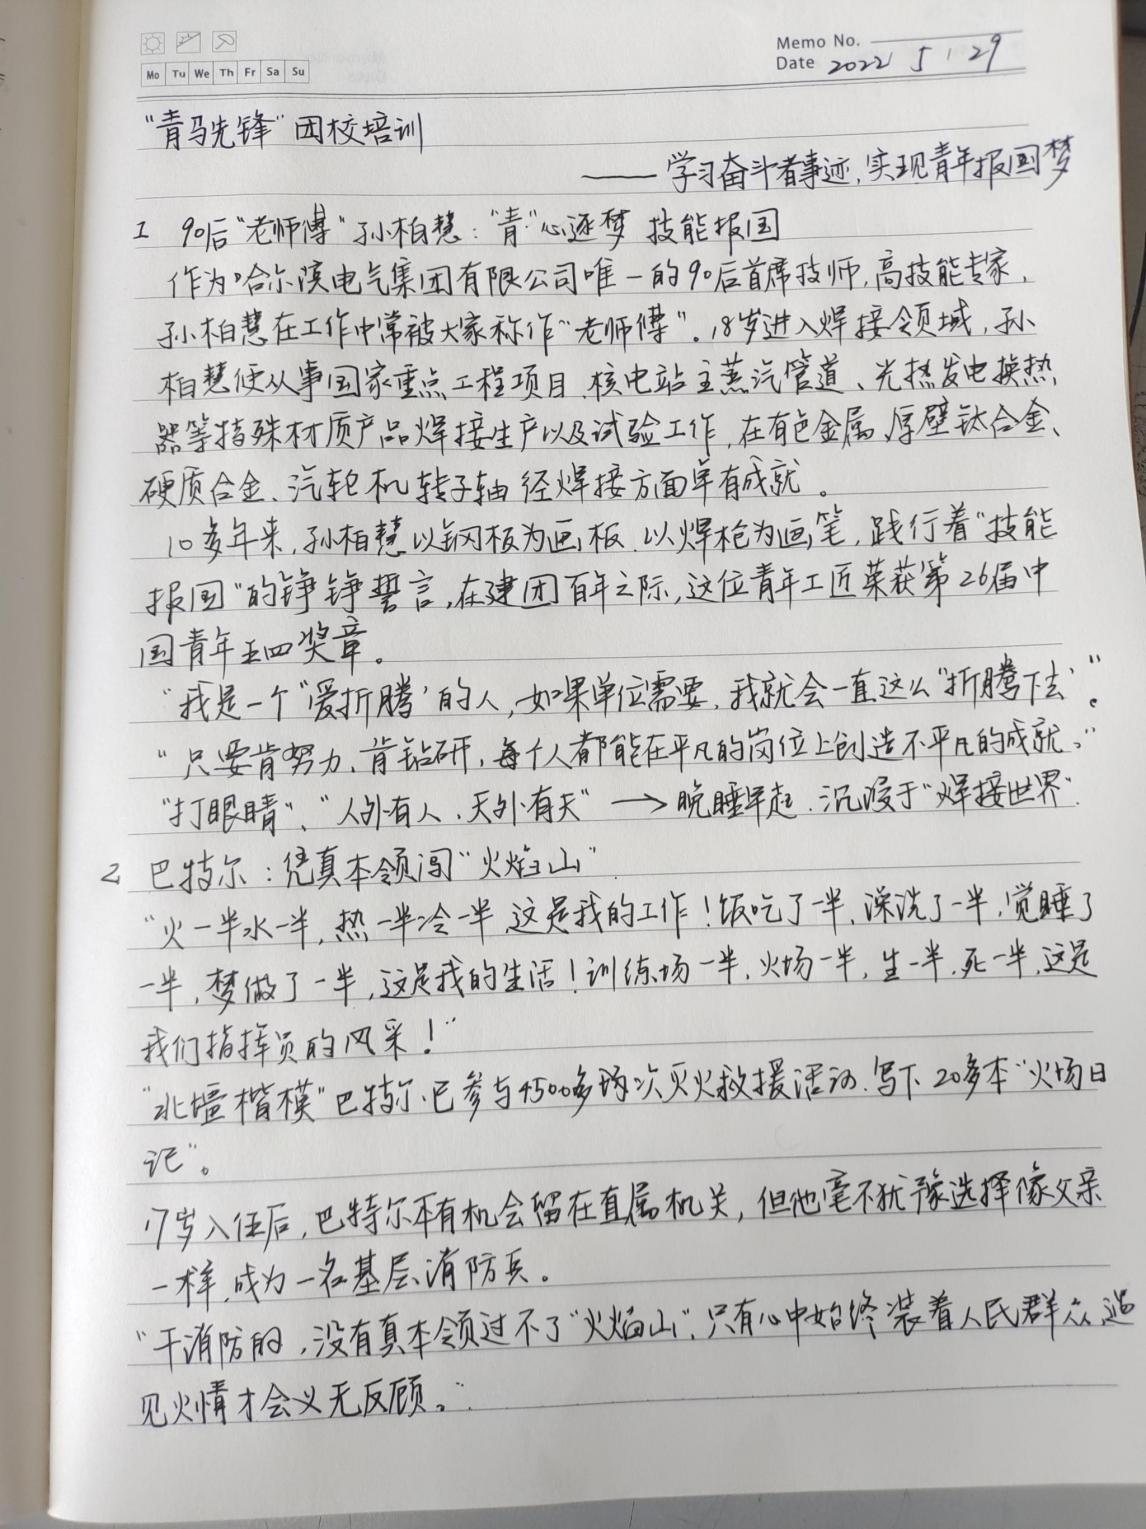 Memo No.
Mo Tu We Th Fr Sa Su
Date 2022 5 29
"青马先锋"团校培训
——学习奋斗者事迹,实现青年报国梦
1 90后"老师傅"孙柏慧:"青"心逐梦 技能报国
作为哈尔滨电气集团有限公司唯一的90后首席技师,高技能专家,
孙柏慧在工作中常被大家称作"老师傅"。18岁进入焊接领域,孙
柏慧便从事国家重点工程项目、核电站主蒸汽管道、光热发电换热
器等特殊材质产品焊接生产以及试验工作,在有色金属、厚壁钛合金、
硬质合金、汽轮机转子轴径焊接方面卓有成就。
10多年来,孙柏慧以钢板为画板、以焊枪为画笔,践行着"技能
报国"的铮铮誓言,在建团百年之际,这位青年工匠荣获第26届中
国青年五四奖章。
"我是一个'爱折腾'的人,如果单位需要,我就会一直这么'折腾下去'"。
"只要肯努力、肯钻研,每个人都能在平凡的岗位上创造不平凡的成就。"
"打眼睛"、"人外有人、天外有天" → 晚睡早起、沉浸于"焊接世界"
2 巴特尔:凭真本领闯"火焰山"
"火一半水一半,热一半冷一半,这是我的工作!饭吃了一半,澡洗了一半,觉睡了
一半,梦做了一半,这是我的生活!训练场一半,火场一半,生一半,死一半,这是
我们指挥员的风采!"
"北疆楷模"巴特尔已参与4500多次灭火救援活动,写下20多本"火场日
记"。
17岁入伍后,巴特尔本有机会留在直属机关,但他毫不犹豫选择像父亲
一样,成为一名基层消防兵。
"干消防的,没有真本领过不了"火焰山",只有心中始终装着人民群众,遇
见火情才会义无反顾。"